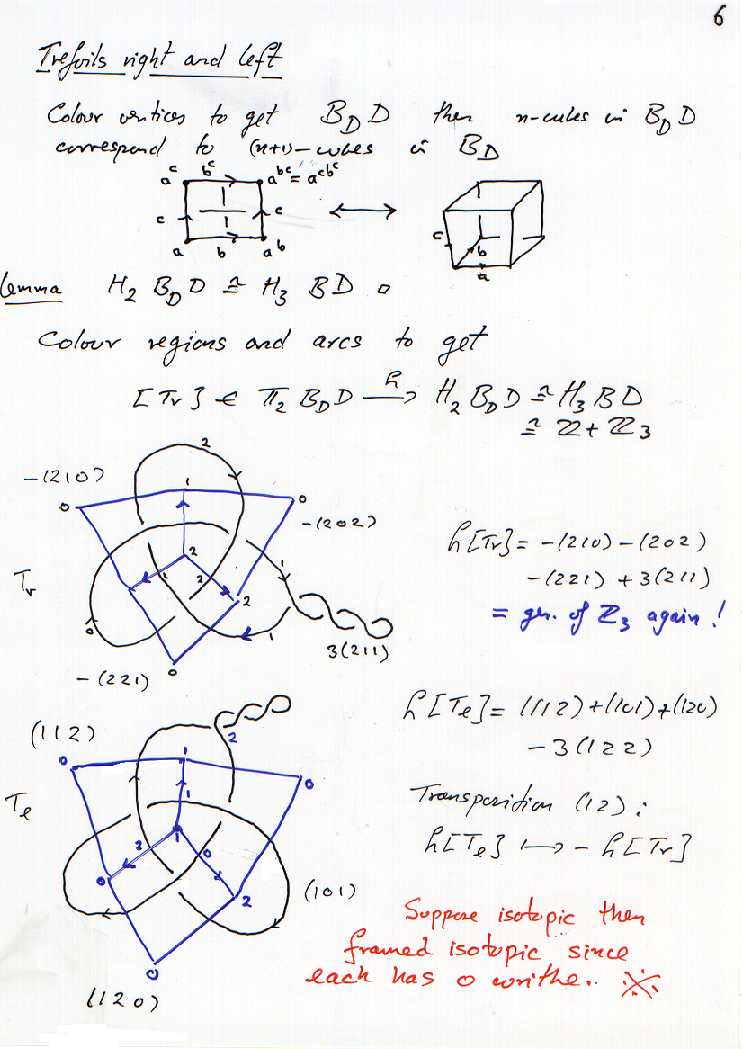 6
Trefoils right and left
Colour vertices to get B_D D then n-cubes in B_D D
correspond to (n+1)-cubes in BD
a^c b^c a^{bc} = a^{cb^c}
c c c
a b a^b b a
Lemma H_2 B_D D ≅ H_3 BD □
Colour regions and arcs to get
[Tr] ∈ π_2 B_D D —h→ H_2 B_D D ≅ H_3 BD
≅ Z + Z_3
2
-(210) 1
0 0
-(202)
h[Tr] = -(210) - (202)
2 1
-(221) + 3(211)
Tr 2 2
= gen. of Z_3 again!
0 1
3(211)
0
-(221)
h[Te] = (112) + (101) + (120)
(112) 2
-3(122)
0 1 0
Te 1
Transposition (12):
2 1 0
h[Te] ↦ -h[Tr]
0 2
(101)
Suppose isotopic then
framed isotopic since
0
each has 0 writhe..
(120)